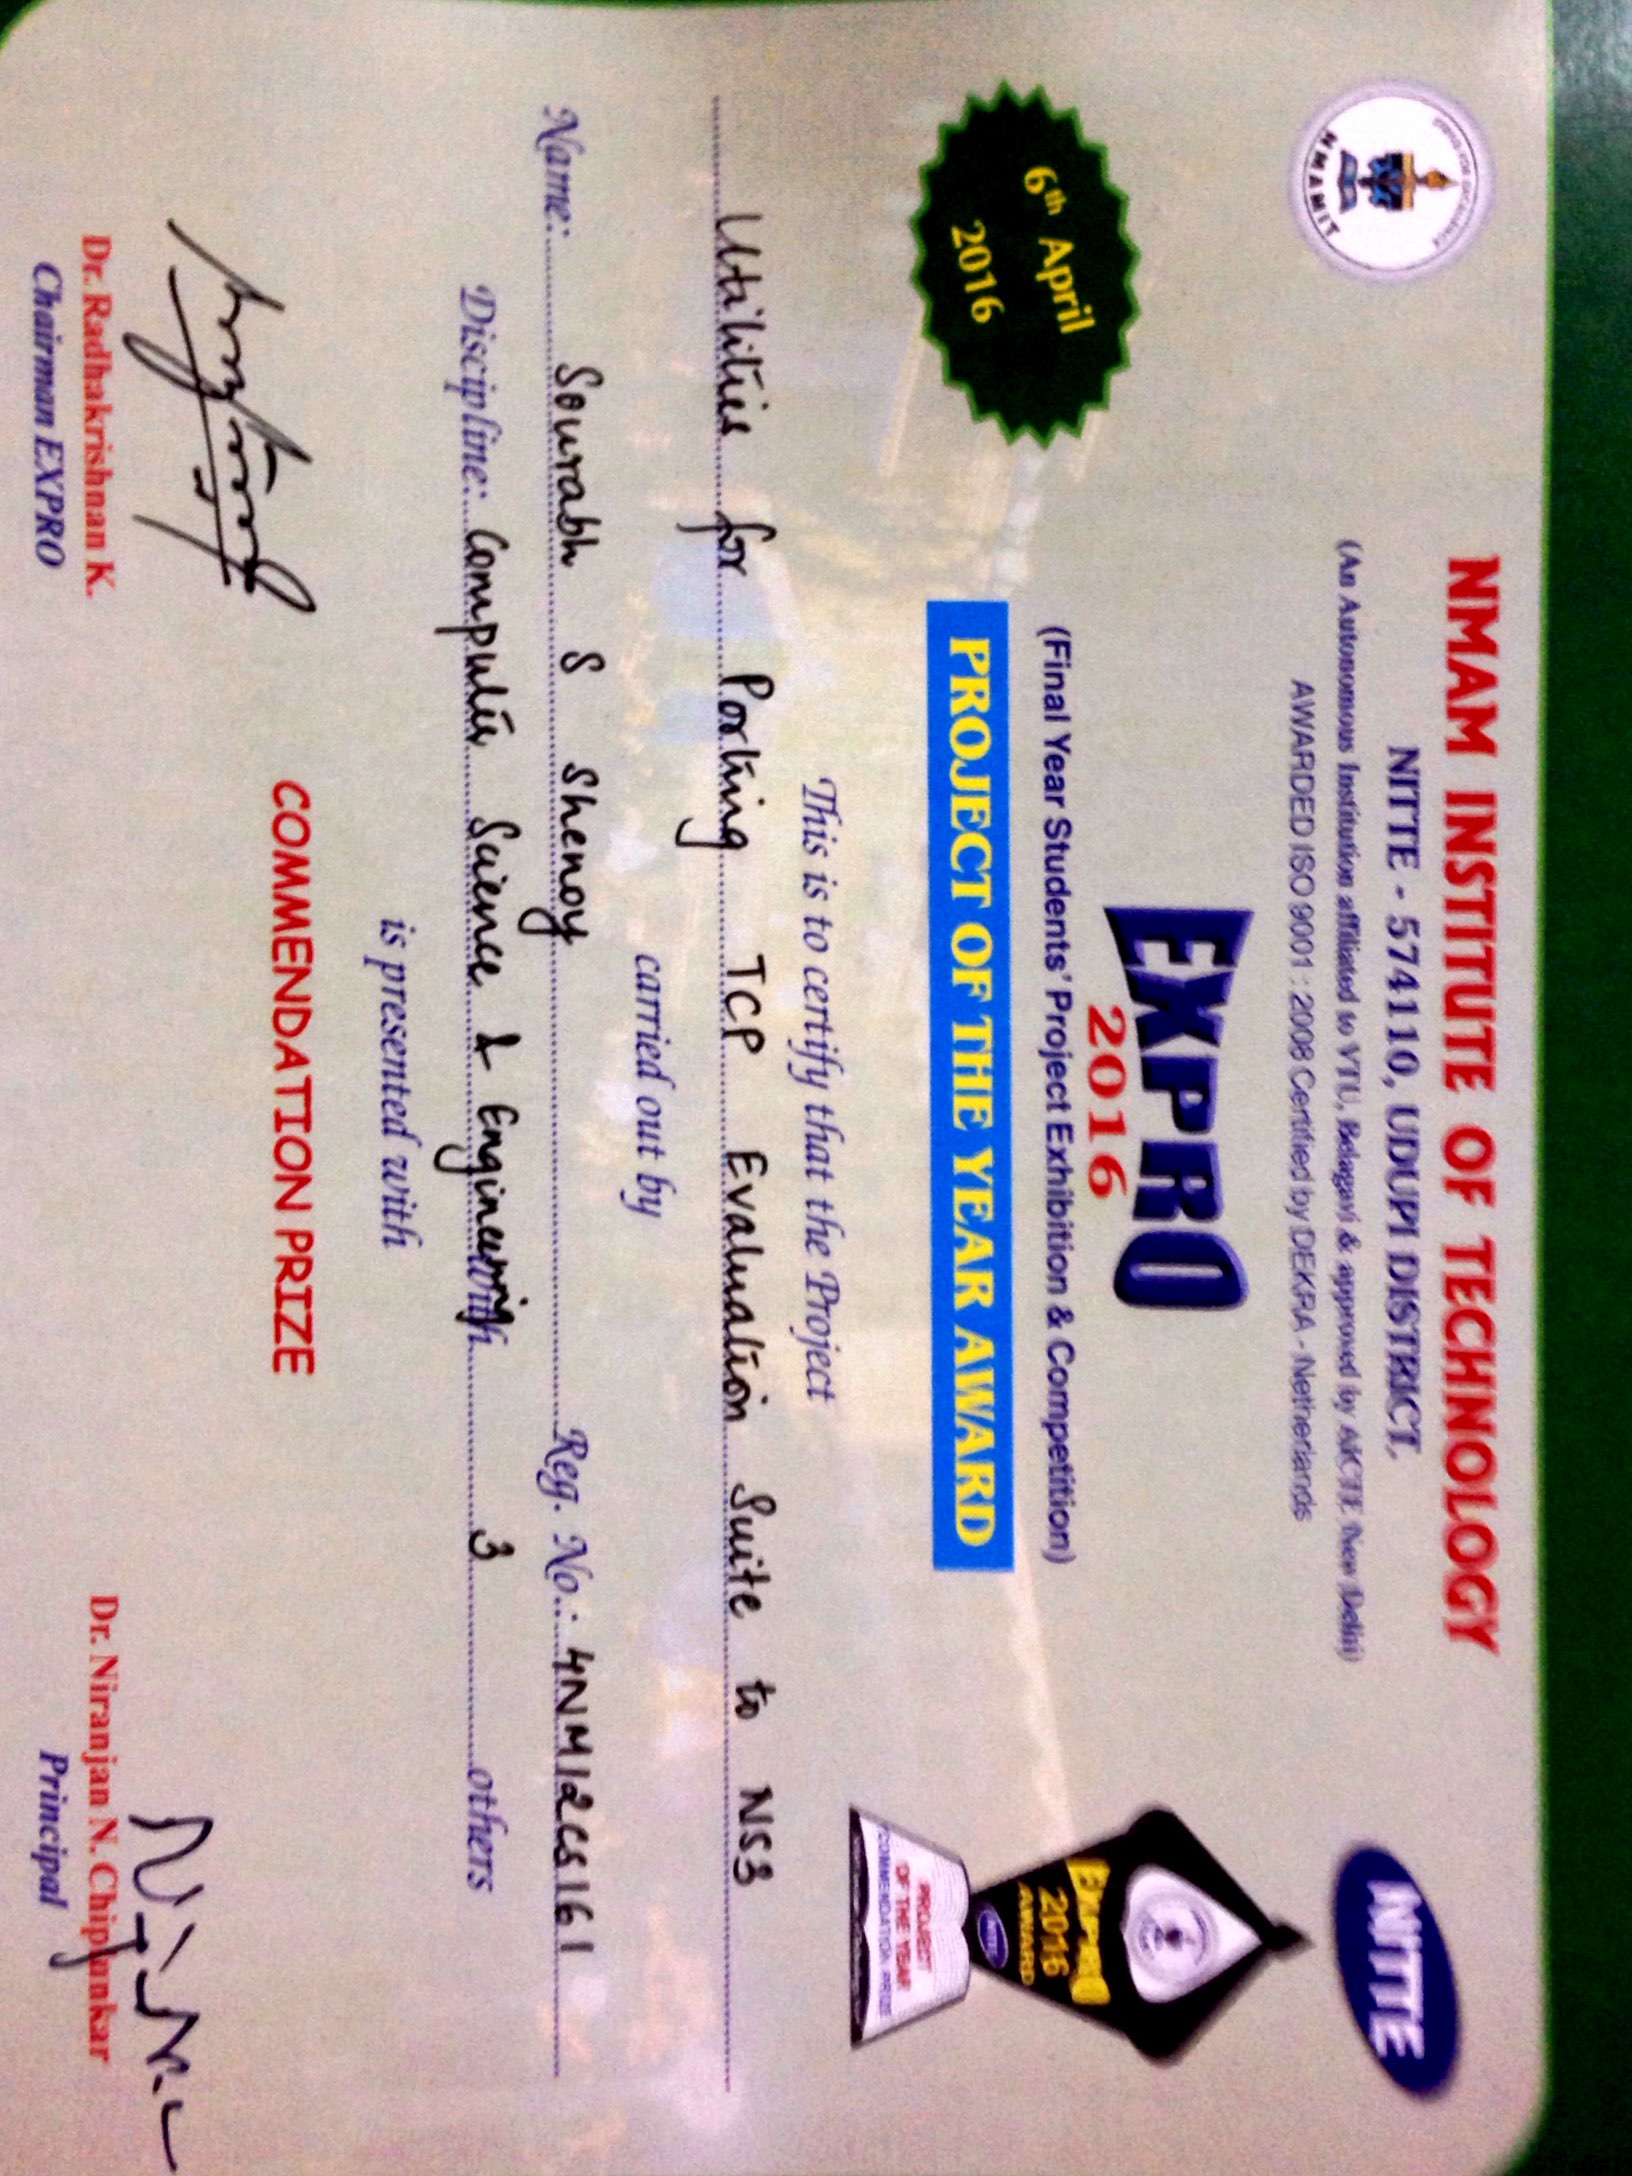 NMAM INSTITUTE OF TECHNOLOGY
NITTE - 574110, UDUPI DISTRICT.
(An Autonomous Institution affiliated to VTU, Belagavi & approved by AICTE New Delhi)
AWARDED ISO 9001 : 2008 Certified by DEKRA - Netherlands
NMAMIT
NITTE
EXPRO
2016
(Final Year Students' Project Exhibition & Competition)
6th April
2016
PROJECT OF THE YEAR AWARD
EXPRO
2016
AWARD
NITTE
PROJECT
OF THE YEAR
COMMENDATION PRIZE
This is to certify that the Project
Utilities for Porting TCP Evaluation Suite to NS3
carried out by
Name: Sourabh S Shenoy Reg. No.: 4NM12CS161
Discipline: Computer Science & Engineering with 3 others
is presented with
COMMENDATION PRIZE
Dr. Radhakrishnan K.
Chairman EXPRO
Dr. Niranjan N. Chiplunkar
Principal